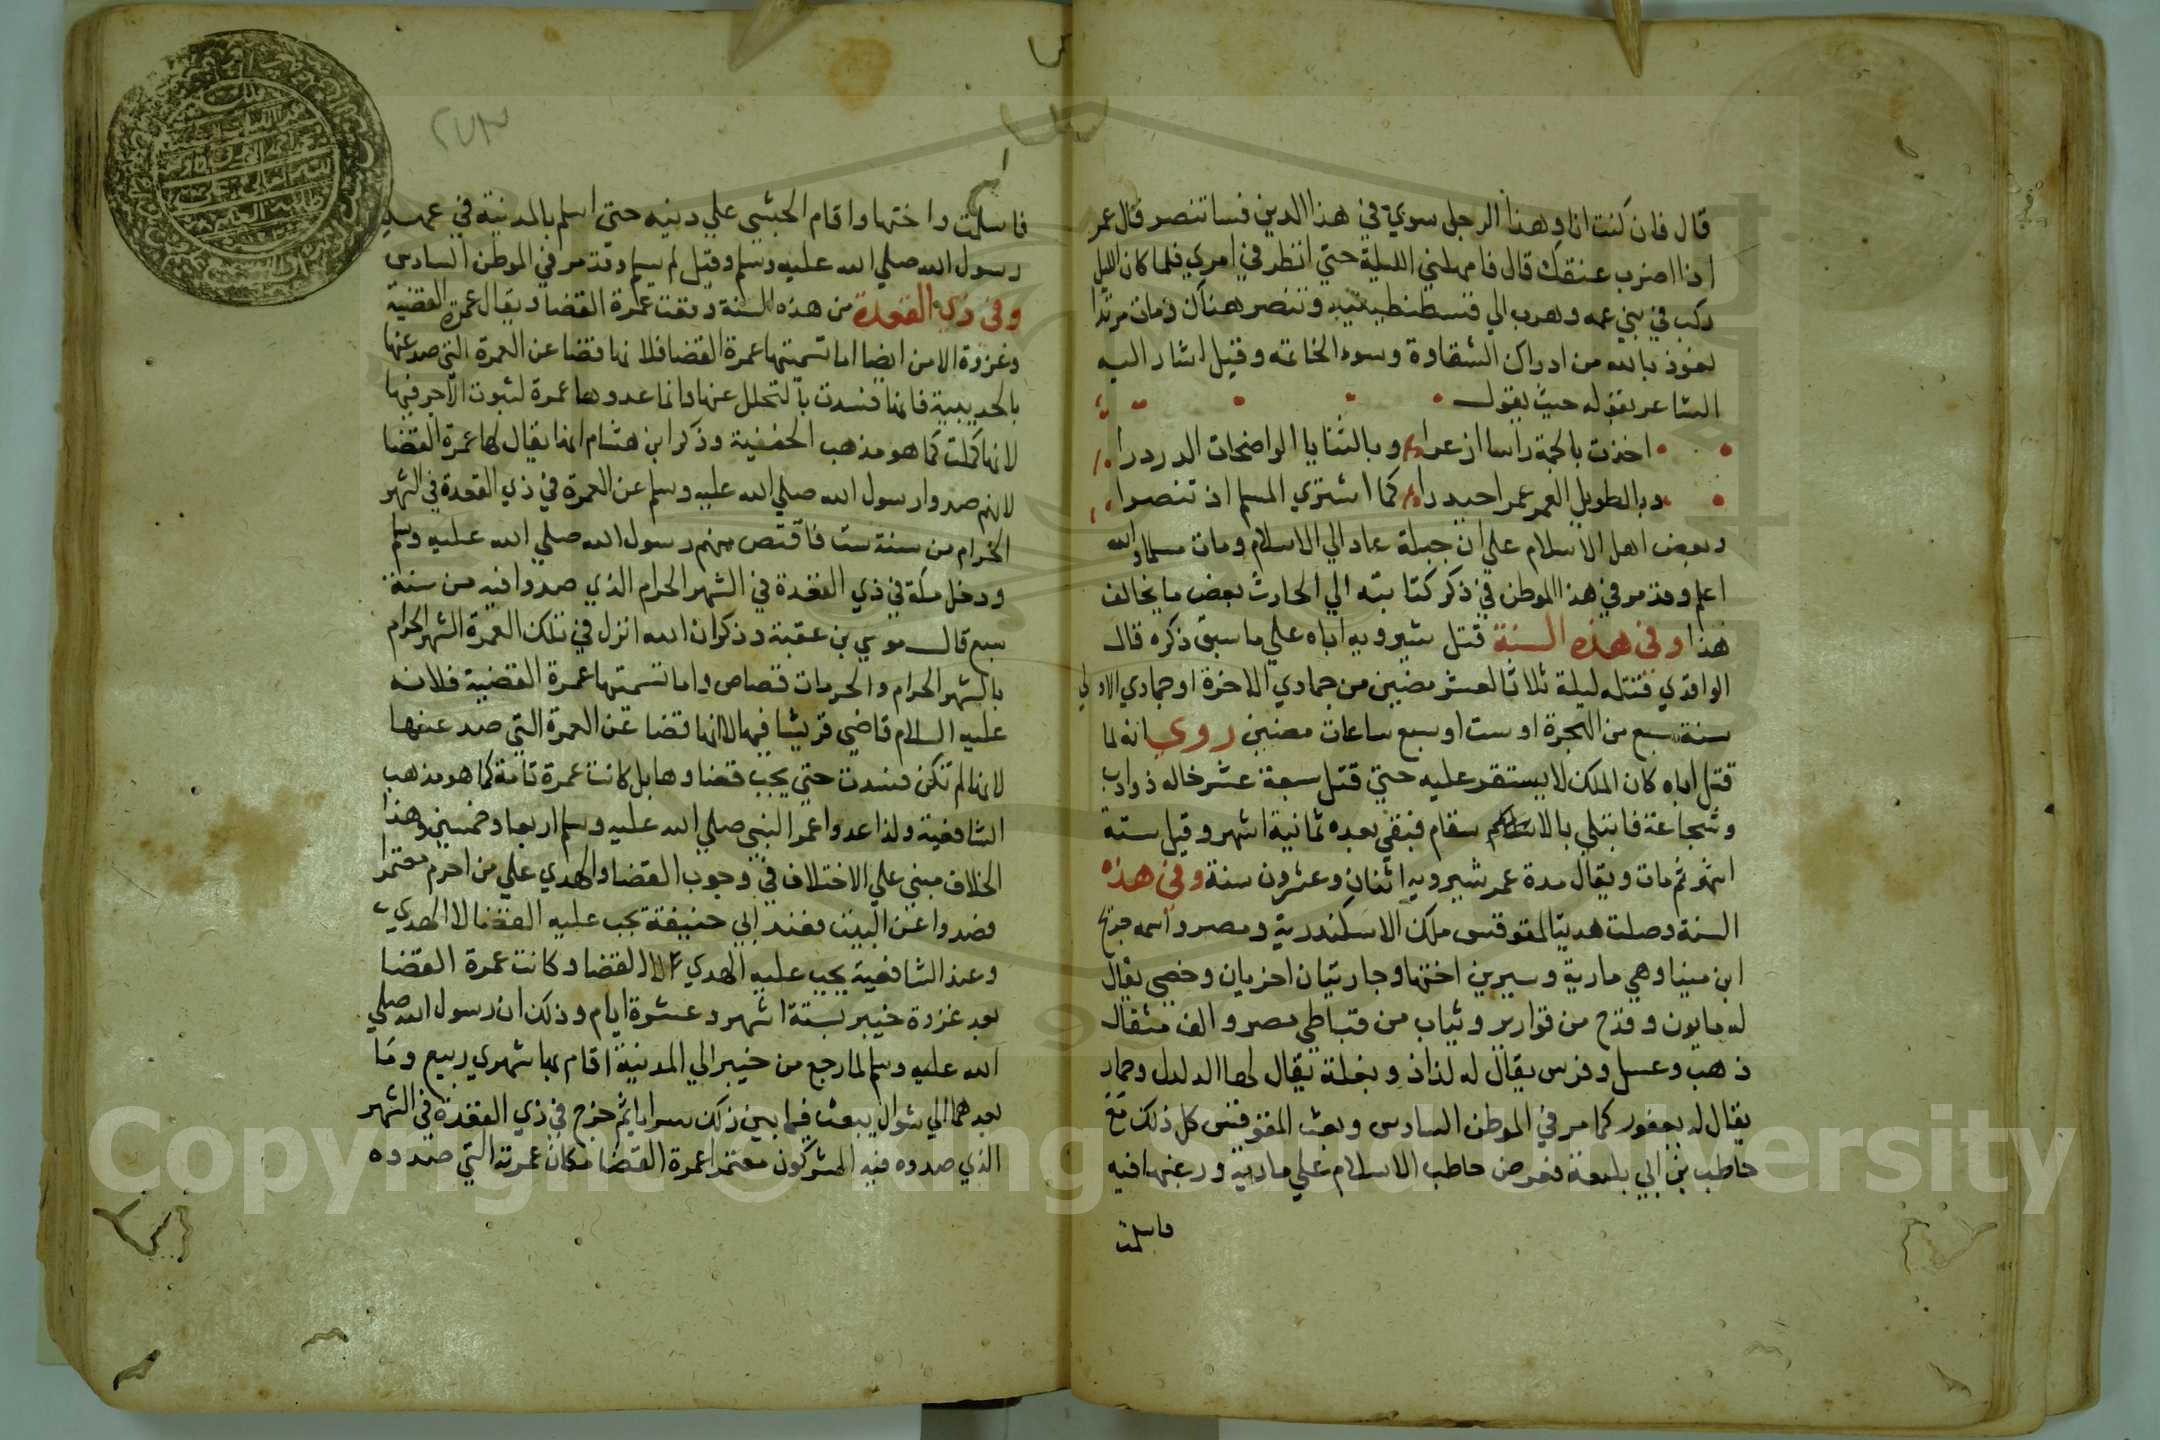 قال فان كنت انا وهذا الرجل سوي في هذا الدين فساتنصر قال عمر
اذا اضرب عنقك قال فامهلني الليلة حتي انظر في امري فلما كان الليل
ركب في بني عمه وهرب الي قسطنطينية وتنصر هناك ومات مرتدا
نعوذ بالله من ادراك الشقاوة وسوء الخاتمة وقيل اشار اليه
الشاعر بقوله حيث يقول
اخذت بالجمة راسا ازعرا وبالثنايا الواضحات الدردرا
وبالطويل العمر عمرا حيدرا كما اشتري المسلم اذ تنصرا
وبعض اهل الاسلام علي ان جبلة عاد الي الاسلام ومات مسلما والله
اعلم وقد مر في هذا الموطن في ذكر كتابته الي الحارث بعض ما يخالف
هذا وفي هذه السنة قتل شيرويه اباه علي ما سبق ذكره قال
الواقدي قتله ليلة ثلاثا لعشر مضين من جمادي الاخرة او جمادي الاولي
سنة سبع من الهجرة او ست او سبع ساعات مضين روي انه لما
قتل اباه كان الملك لا يستقر عليه حتي قتل سبعة عشر خاله ذواداب
وشجاعة فابتلي بالاسقام فبقي بعده ثمانية اشهر وقيل ستة
اشهر ثم مات ويقال مدة عمر شيرويه اثنان وعشرون سنة وفي هذه
السنة وصلت هدية المقوقس ملك الاسكندرية ومصر واسمه جريج
ابن مينا وهي مارية وسيرين اختها وجاريتان اخريان وخصي يقال
له مابون وقدح من قوارير وثياب من قباطي مصر والف مثقال
ذهب وعسل وفرس يقال له لذاذ وبغلة يقال لها الدلدل وحمار
يقال له يعفور كما مر في الموطن السادس وبعث المقوقس كل ذلك مع
حاطب بن ابي بلتعة فعرض حاطب الاسلام علي مارية ورغبها فيه
فاسلمت
٢٧٣
فاسلمت واختها واقام الخصي علي دينه حتي اسلم بالمدينة في عهد
رسول الله صلي الله عليه وسلم وقيل لم يسلم وقد مر في الموطن السادس
وفي ذي القعدة من هذه السنة وقعت عمرة القضا ويقال عمرة القضية
وغزوة الامن ايضا اما تسميتها عمرة القضا فلانها قضا عن العمرة التي صد عنها
بالحديبية فانها فسدت بالتحلل عنها وانما عدوها عمرة لثبوت الاجر فيها
لانها كملت كما هو مذهب الحنفية وذكر ابن هشام انها يقال لها عمرة القضا
لانهم صدوا رسول الله صلي الله عليه وسلم عن العمرة في ذي القعدة في الشهر
الحرام من سنة ست فاقتص منهم رسول الله صلي الله عليه وسلم
ودخل مكة في ذي القعدة في الشهر الحرام الذي صدوا فيه من سنة
سبع قال موسي بن عقبة وذكر ان الله انزل في تلك العمرة الشهر الحرام
بالشهر الحرام والحرمات قصاص واما تسميتها عمرة القضية فلانه
عليه السلام قاضي قريشا فيها لا انها قضا عن العمرة التي صد عنها
لانها لم تكن فسدت حتي يجب قضاوها بل كانت عمرة تامة كما هو مذهب
الشافعية ولذا عدوا عمر النبي صلي الله عليه وسلم اربعا وهذا
الخلاف مبني علي الاختلاف في وجوب القضا والهدي علي من احرم معتمرا
فصدوا عن البيت فعند ابي حنيفة يجب عليه القضا لا الهدي
وعند الشافعية يجب عليه الهدي لا القضا وكانت عمرة القضا
بعد غزوة خيبر بستة اشهر وعشرة ايام وذلك ان رسول الله صلي
الله عليه وسلم لما رجع من خيبر الي المدينة اقام بها شهري ربيع وما
بعدهما الي شوال يبعث فيما بين ذلك سرايا ثم خرج في ذي القعدة في الشهر
الذي صدوه فيه المشركون معتمرا عمرة القضا مكان عمرته التي صدوه
Copyright © King Saud University